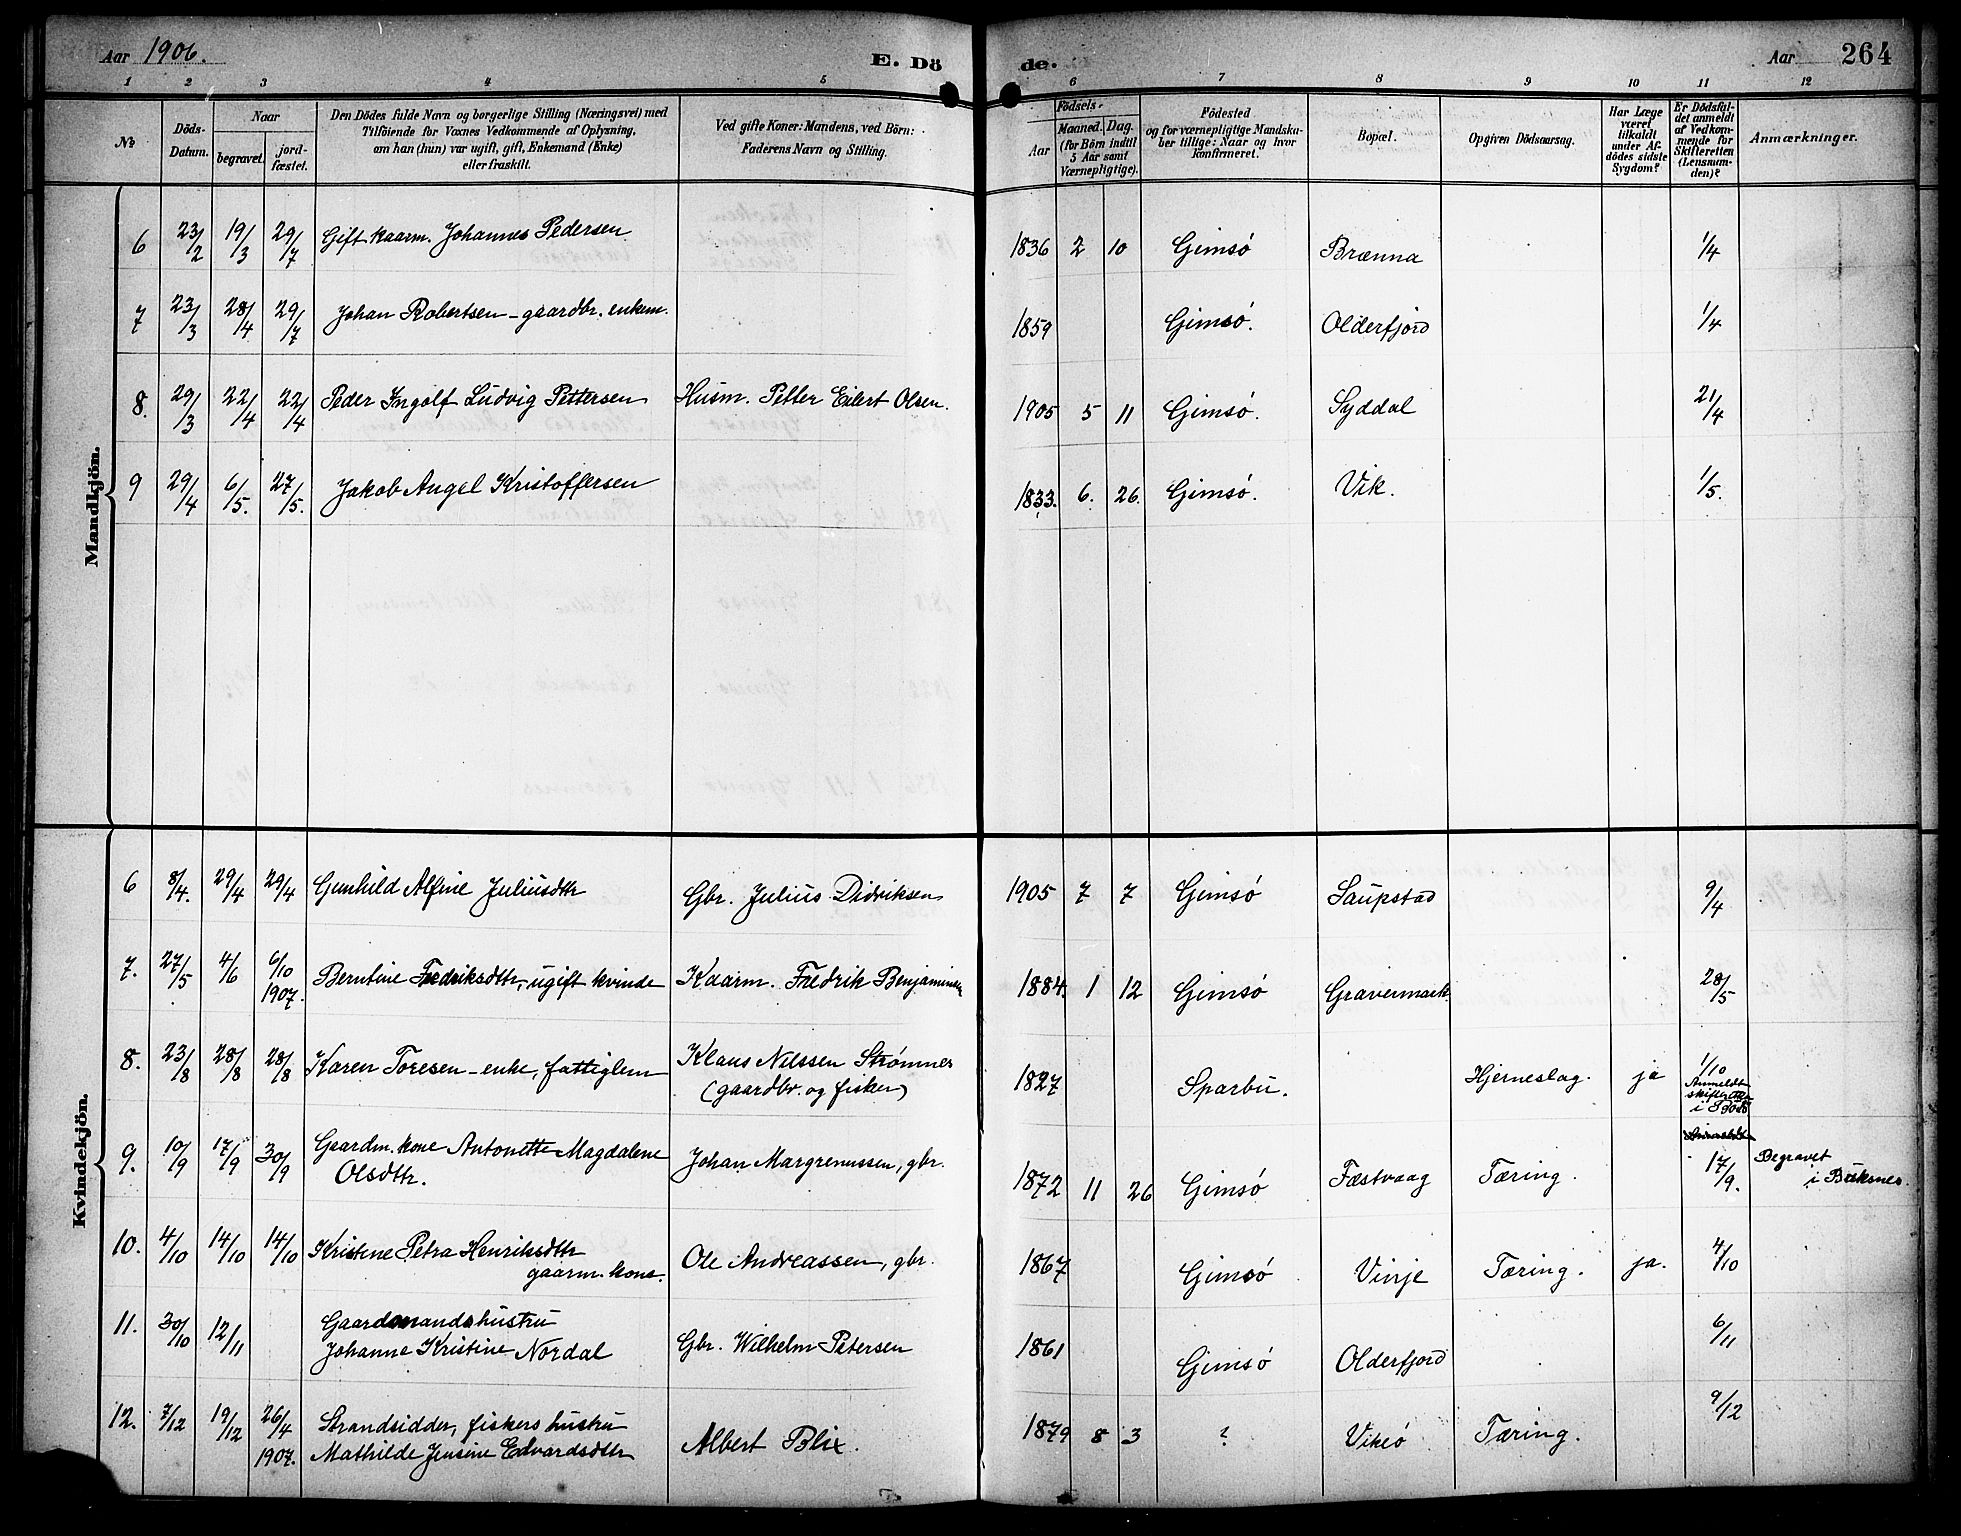 Aar 1906.
E. Dö
de.
Aar 264
1 2 3 4 5 6 7 8 9 10 11 12
№
Döds-Datum.
Naar
begravet.
jord-fæstet.
Den Dödes fulde Navn og borgerlige Stilling (Næringsvei) med
Tilföiende for Voxnes Vedkommende af Oplysning,
om han (hun) var ugift, gift, Enkemand (Enke)
eller fraskilt.
Ved gifte Koner: Mandens, ved Börn:
Faderens Navn og Stilling.
Födsels-
Aar
Maaned. Dag.
(for Börn indtil
5 Aar samt
Værnepligtige).
Födested
og for værnepligtige Mandska-
ber tillige: Naar og hvor
konfirmeret.
Bopæl.
Opgiven Dödsaarsag.
Har Læge
været
tilkaldt
under Af-
dödes sidste
Sygdom?
Er Dödsfal-
det anmeldt
af Vedkom-
mende for
Skifteretten
(Lensman-
den)?
Anmærkninger.
Mandkjön.
6 23/2 19/3 29/7 Gift kaarm. Johannes Pedersen 1836 2 10 Gimsö Brænna 1/4
7 23/3 28/4 29/7 Johan Robertsen - gaardbr. enkem. 1859 Gimsö. Olderfjord 1/4
8. 29/3 22/4 22/4 Peder Ingolf Ludvig Pettersen Husm. Petter Eilert Olsen. 1905 5 11 Gimsö. Syddal 21/4
9 29/4 6/5. 27/5. Jakob Angel Kristoffersen 1833. 6. 26. Gimsö. Vik. 1/5.
Kvindekjön.
6 8/4. 29/4 29/4 Gunhild Alfine Juliusdtr Gbr. Julius Didriksen 1905 7 7 Gimsö Saupstad 9/4
7. 27/5 4/6 6/10 1907. Berntine Fredriksdtr, ugift kvinde Kaarm. Fredrik Benjaminsen 1884 1 12 Gimsö Gravermark 28/5
8. 23/8 28/8 28/8 Karen Toresen - enke, fattiglem Klaus Nilssen Strømnes
(gaardbr. og fisker) 1827 Sparbu. Hjerneslag. ja 1/10
Anmeldt
skifteretten
i Bodö
9. 10/9 17/9 30/9 Gaardm. kone Antonette Magdalene
Olsdtr. Johan Margrenussen, gbr. 1872 11 26 Gimsö Fæstvaag Tæring. 17/9. Begravet
i Buksnes.
10. 4/10 14/10 14/10 Kristene Petra Henriksdtr
gaarm. kone. Ole Andreassen, gbr. 1867 Gimsö Vinje Tæring. ja. 4/10
11. 30/10 12/11 Gaardmandshustru
Johanna Kristine Nordal Gbr. Wilhelm Petersen 1861 Gimsö Olderfjord 6/11
12. 7/12 19/12 26/4 1907. Strandsidder, fiskers hustru
Mathilde Jensine Edvardsdtr Albert Blix. 1879 8 3 ? Vikeö Tæring. 9/12